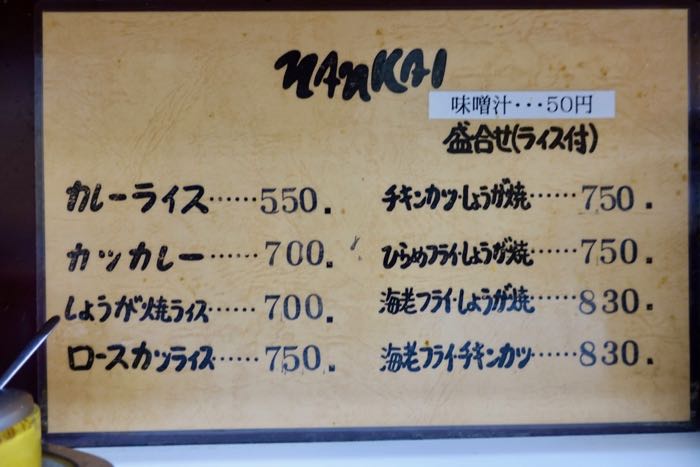 NANKAI
味噌汁・・・50円
盛合せ(ライス付)
カレーライス……550.
カツカレー……700.
しょうが焼ライス……700.
ロースカツライス……750.
チキンカツ・しょうが焼……750.
ひらめフライ・しょうが焼……750.
海老フライ・しょうが焼……830.
海老フライ・チキンカツ……830.